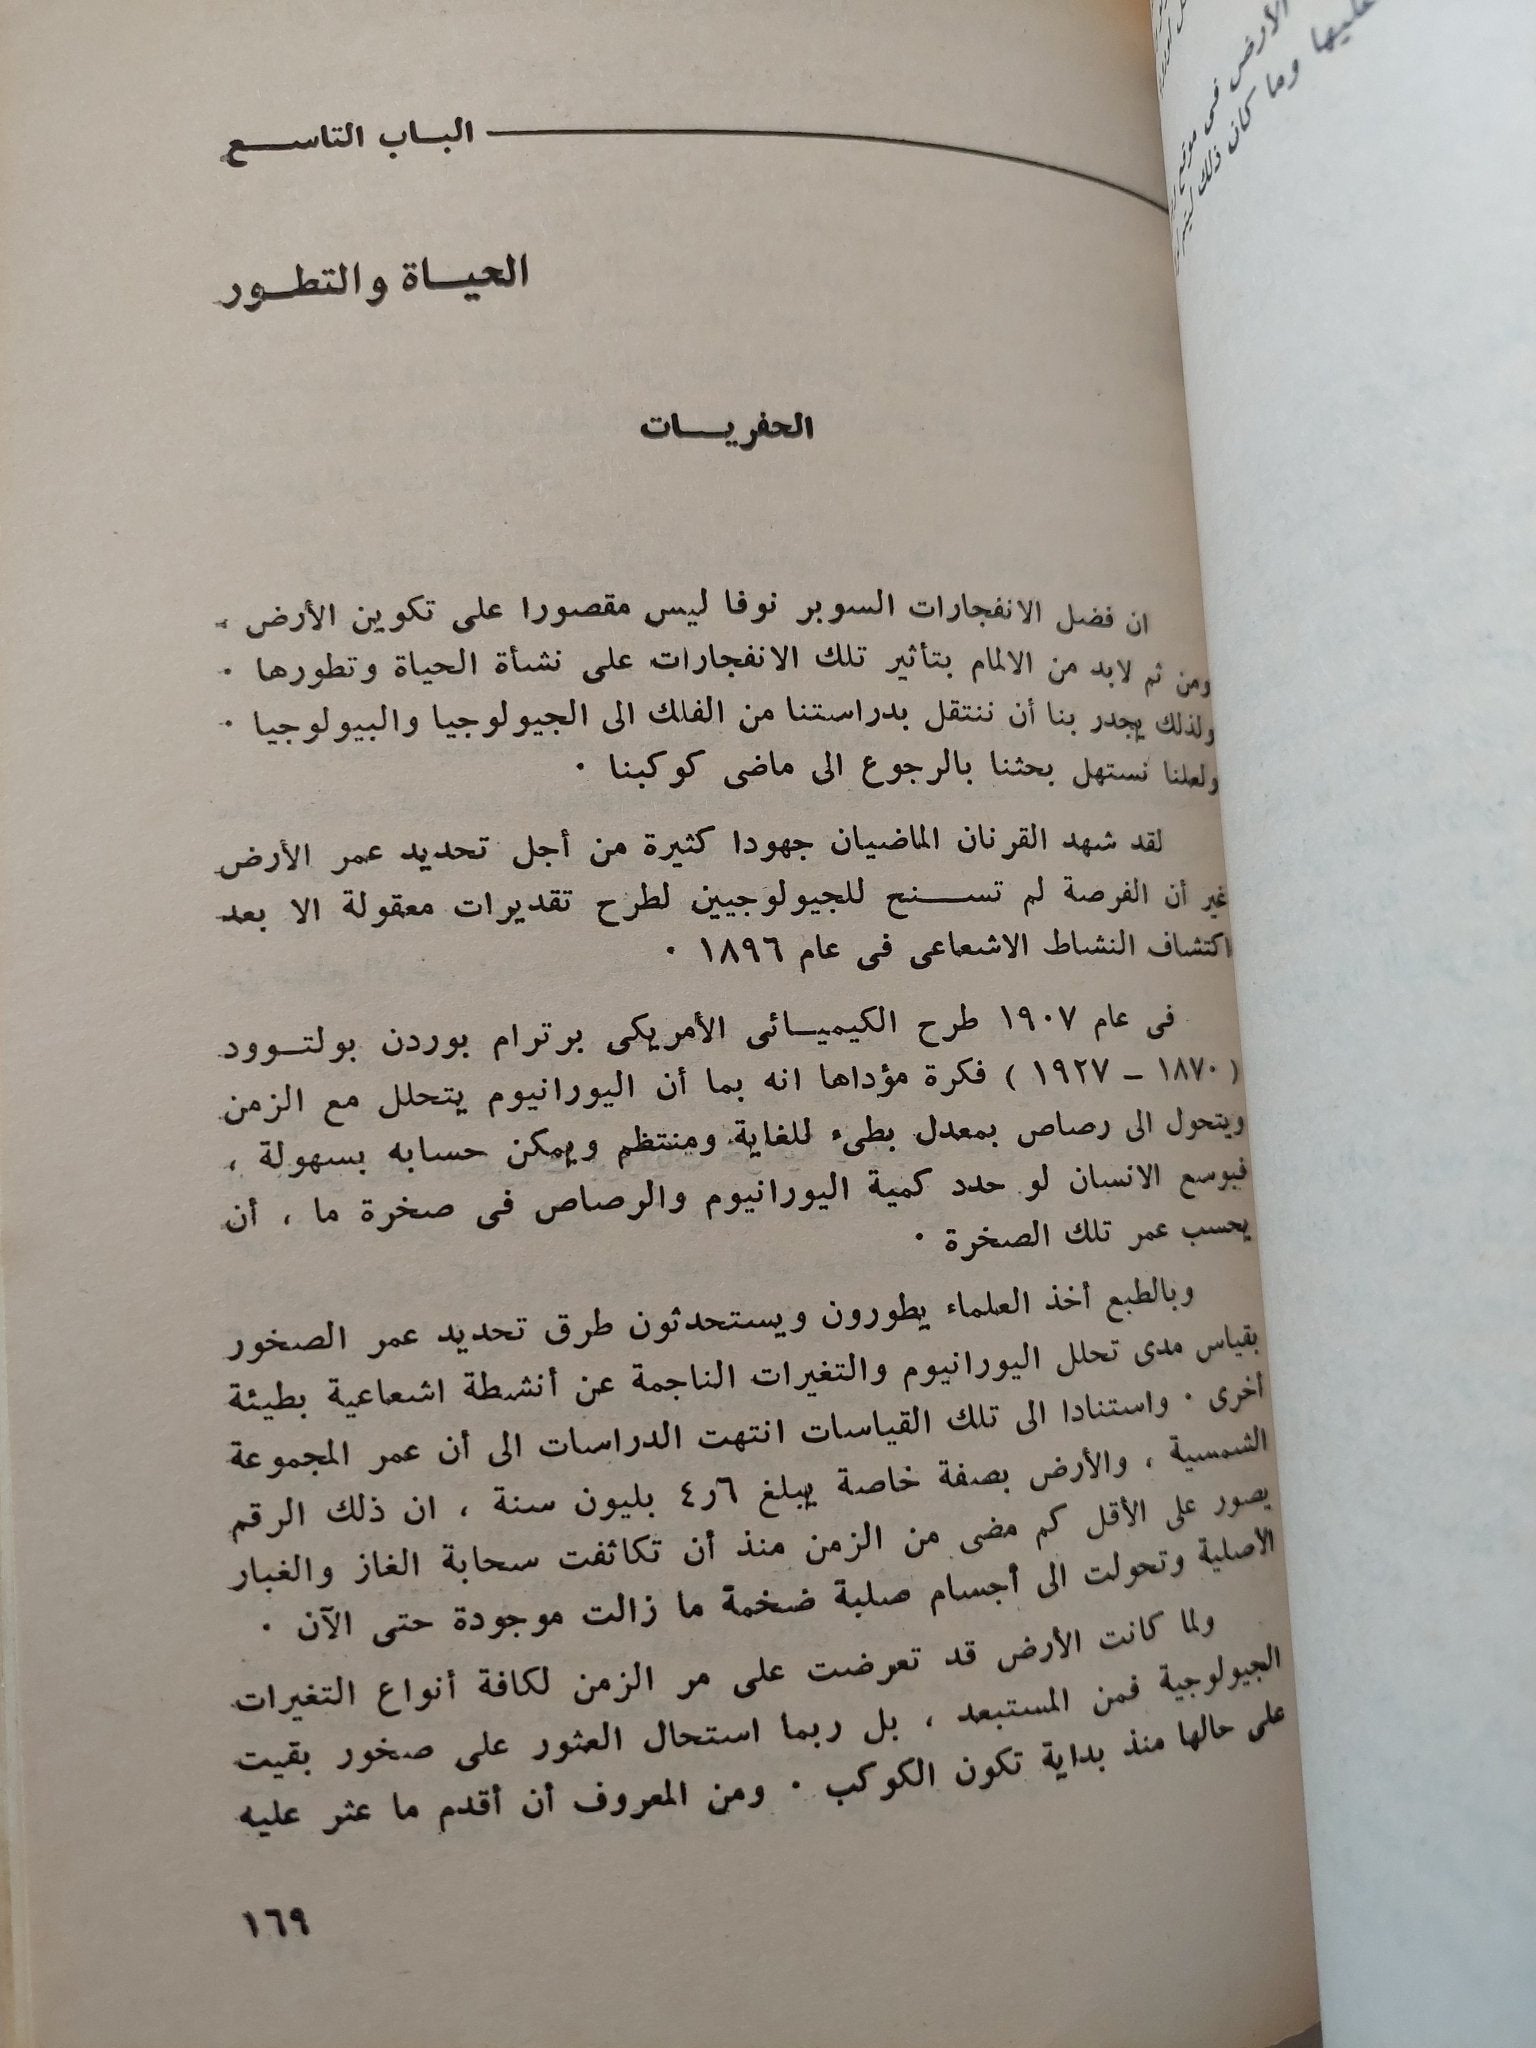 الباب التاسع
الحياة والتطور
الحفريات
ان فضل الانفجارات السوبر نوفا ليس مقصورا على تكوين الأرض ،
ومن ثم لابد من الالمام بتأثير تلك الانفجارات على نشأة الحياة وتطورها ٠
ولذلك يجدر بنا أن ننتقل بدراستنا من الفلك الى الجيولوجيا والبيولوجيا ٠
ولعلنا نستهل بحثنا بالرجوع الى ماضى كوكبنا ٠
لقد شهد القرنان الماضيان جهودا كثيرة من أجل تحديد عمر الأرض
غير أن الفرصة لم تسنح للجيولوجيين لطرح تقديرات معقولة الا بعد
اكتشاف النشاط الاشعاعى فى عام ١٨٩٦ ٠
فى عام ١٩٠٧ طرح الكيميائى الأمريكى برترام بوردن بولتوود
( ١٨٧٠ – ١٩٢٧ ) فكرة مؤداها انه بما أن اليورانيوم يتحلل مع الزمن
ويتحول الى رصاص بمعدل بطىء للغاية ومنتظم ويمكن حسابه بسهولة ،
فبوسع الانسان لو حدد كمية اليورانيوم والرصاص فى صخرة ما ، أن
يحسب عمر تلك الصخرة ٠
وبالطبع أخذ العلماء يطورون ويستحدثون طرق تحديد عمر الصخور
بقياس مدى تحلل اليورانيوم والتغيرات الناجمة عن أنشطة اشعاعية بطيئة
أخرى ٠ واستنادا الى تلك القياسات انتهت الدراسات الى أن عمر المجموعة
الشمسية ، والأرض بصفة خاصة يبلغ ٦ر٤ بليون سنة ، ان ذلك الرقم
يصور على الأقل كم مضى من الزمن منذ أن تكاثفت سحابة الغاز والغبار
الأصلية وتحولت الى أجسام صلبة ضخمة ما زالت موجودة حتى الآن ٠
ولما كانت الأرض قد تعرضت على مر الزمن لكافة أنواع التغيرات
الجيولوجية فمن المستبعد ، بل ربما استحال العثور على صخور بقيت
على حالها منذ بداية تكون الكوكب ٠ ومن المعروف أن أقدم ما عثر عليه
١٦٩
الأرض فى موقع
عليها وما كان ذلك ليتم